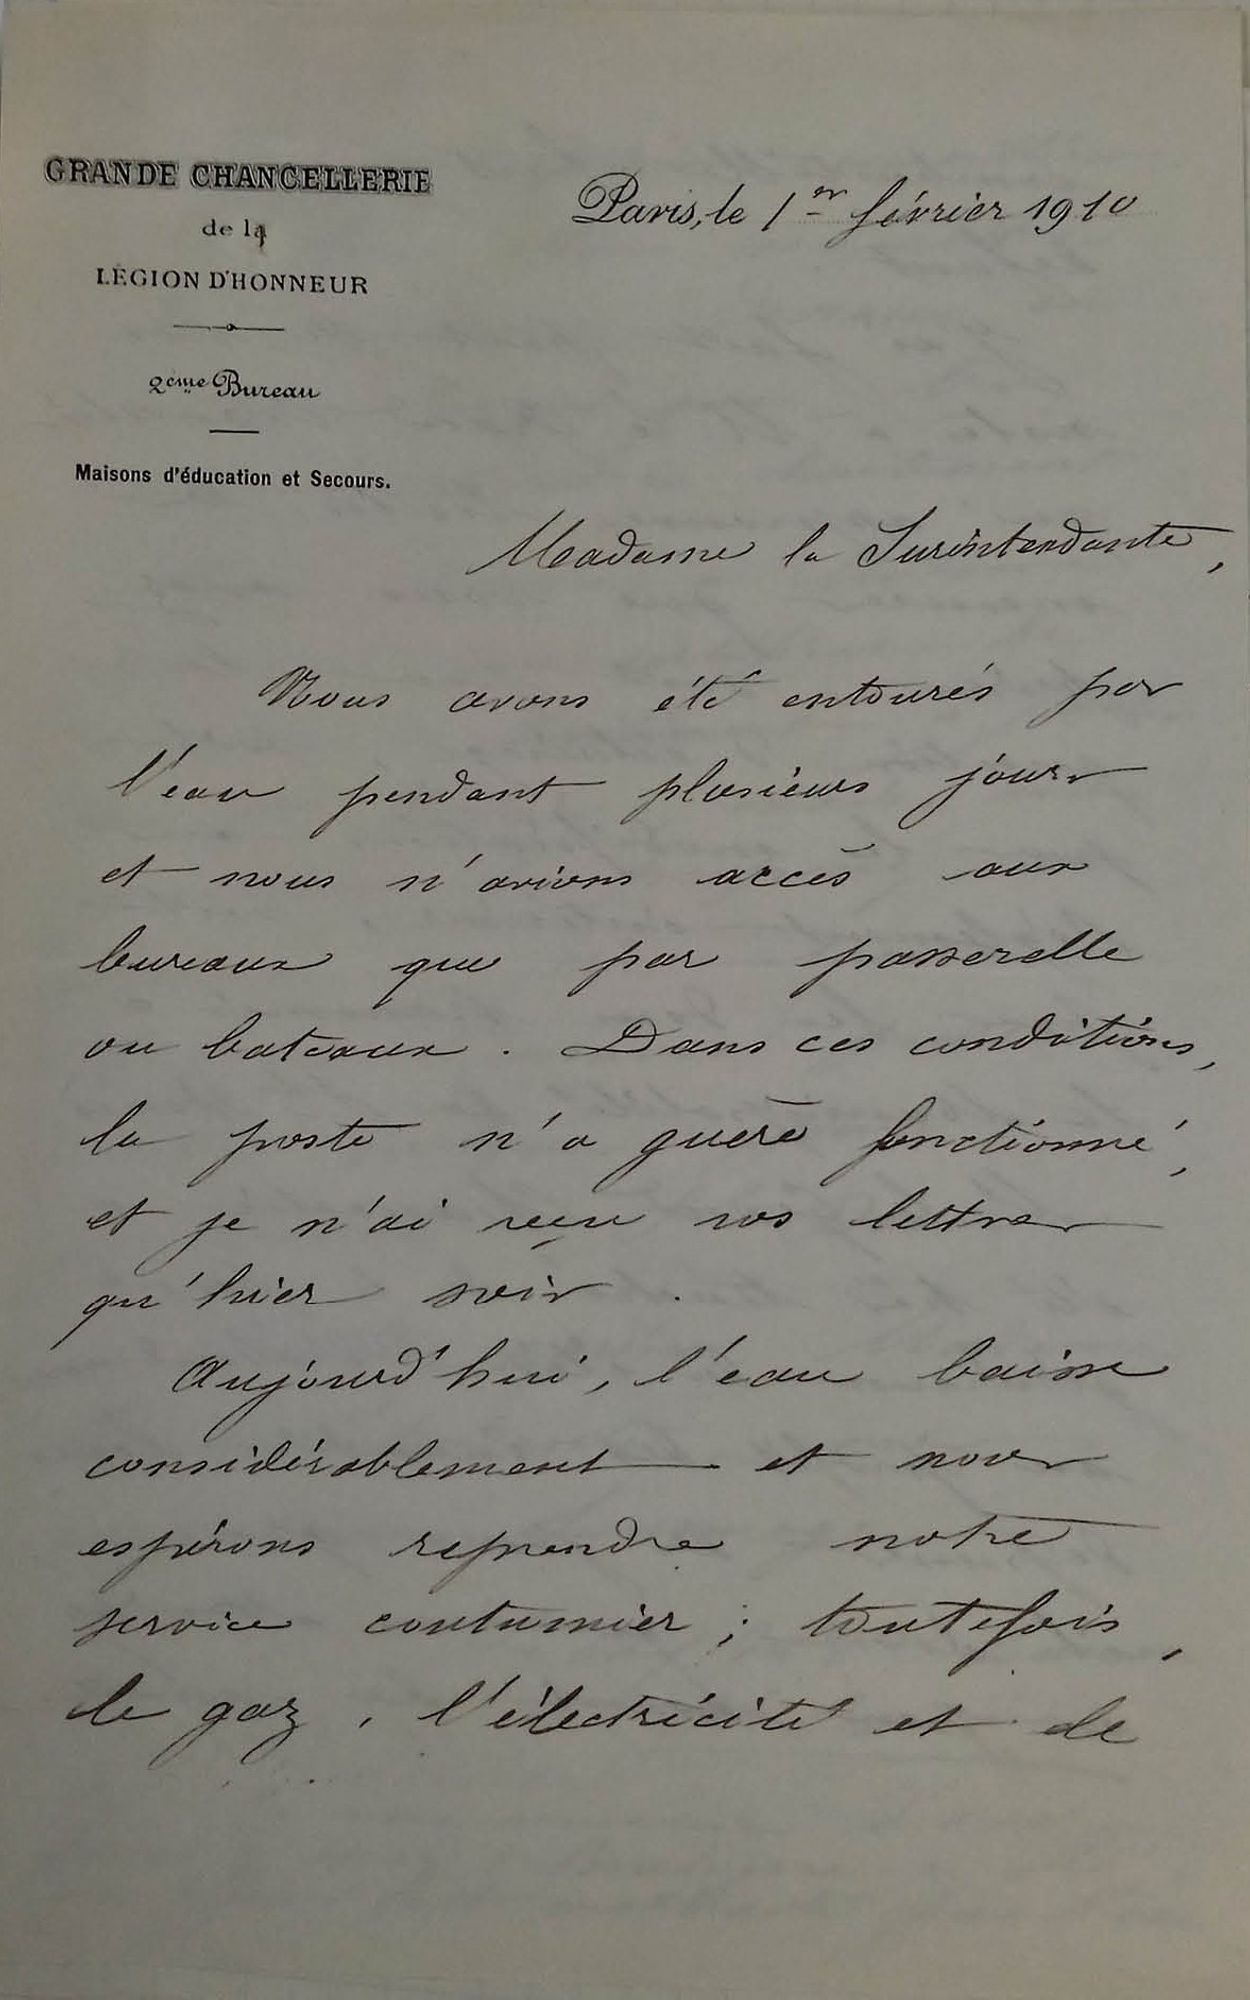 GRANDE CHANCELLERIE
de la
LÉGION D'HONNEUR
2ème Bureau
Maisons d'éducation et Secours.
Paris, le 1er février 1910
Madame la Surintendante,
Nous avons été entourés par
l'eau pendant plusieurs jours
et nous n'avions accès aux
bureaux que par passerelle
ou bateaux. Dans ces conditions,
la poste n'a guère fonctionné,
et je n'ai reçu vos lettres
qu'hier soir.
Aujourd'hui, l'eau baisse
considérablement et nous
espérons reprendre notre
service coutumier ; toutefois,
le gaz, l'électricité et de